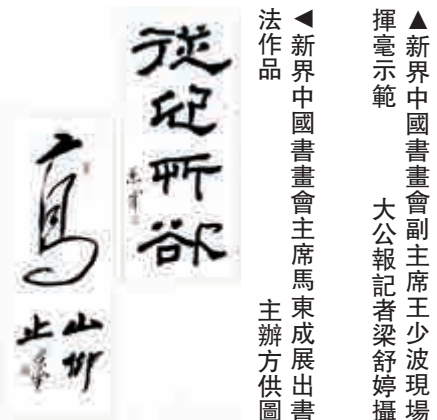 ▲新界中國書畫會副主席王少波現場
揮毫示範 大公報記者梁舒婷攝
◀新界中國書畫會主席馬東成展出書
法作品 主辦方供圖
從所欲
高
山仰
止